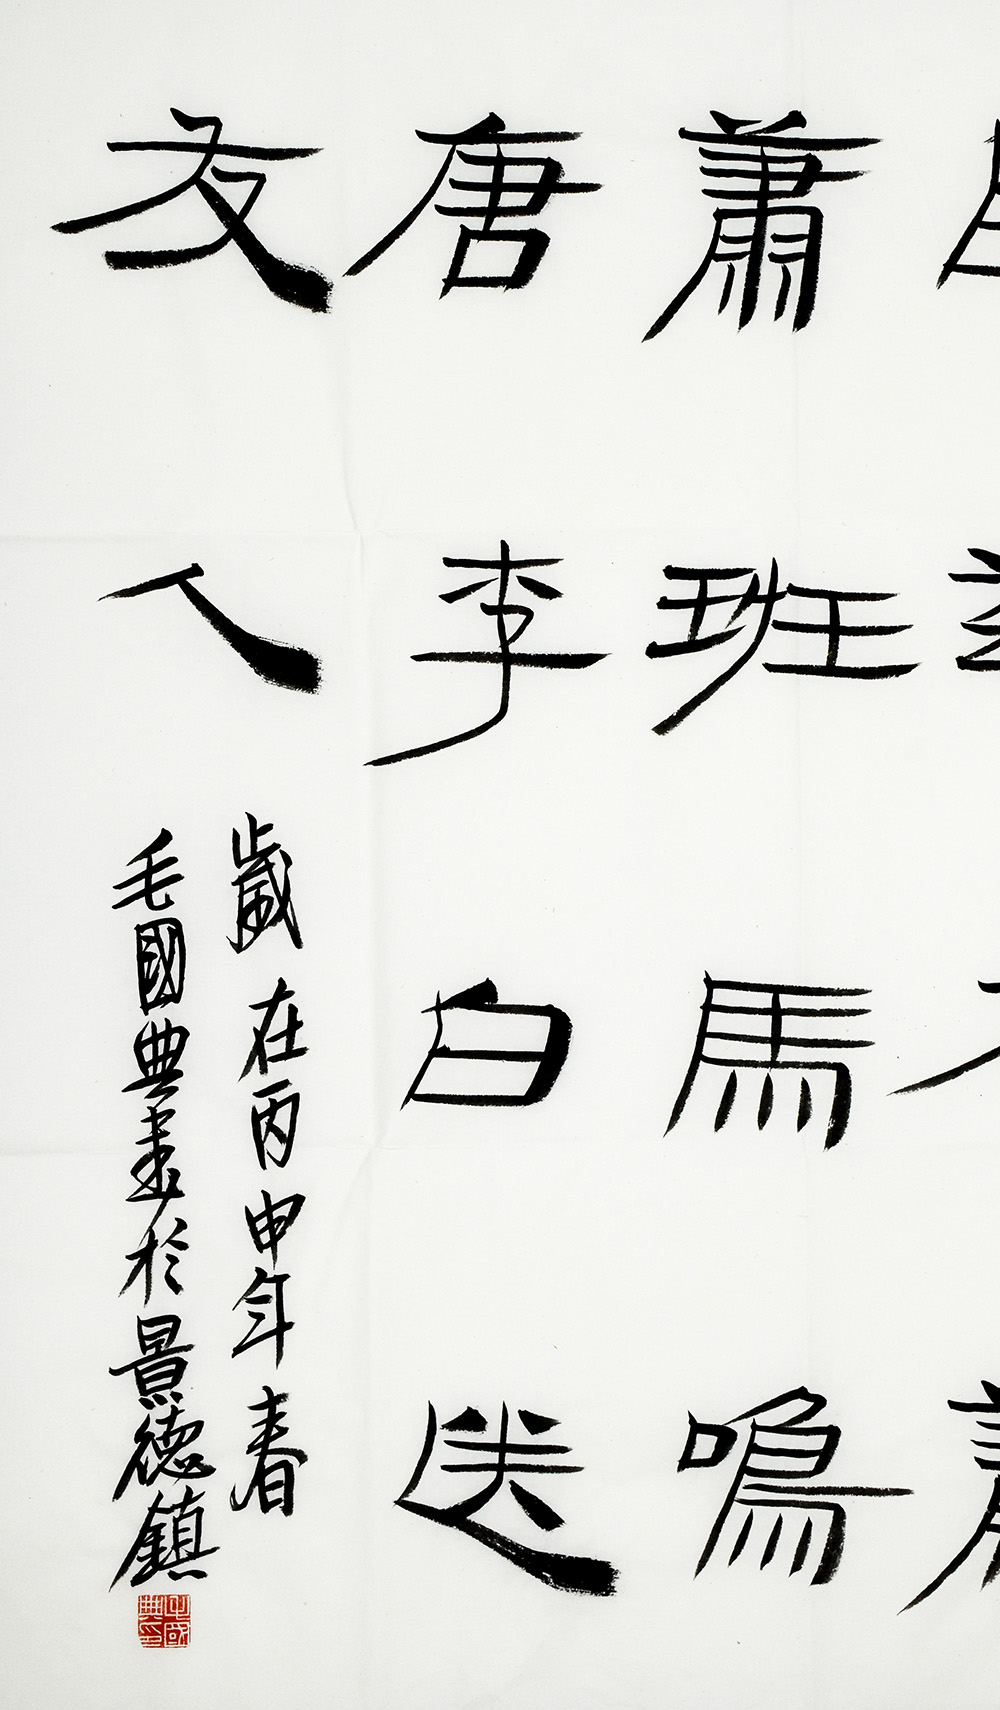 蕭班馬鳴
唐李白送
友人
歲在丙申年春
毛國典書於景德鎮
毛國典印